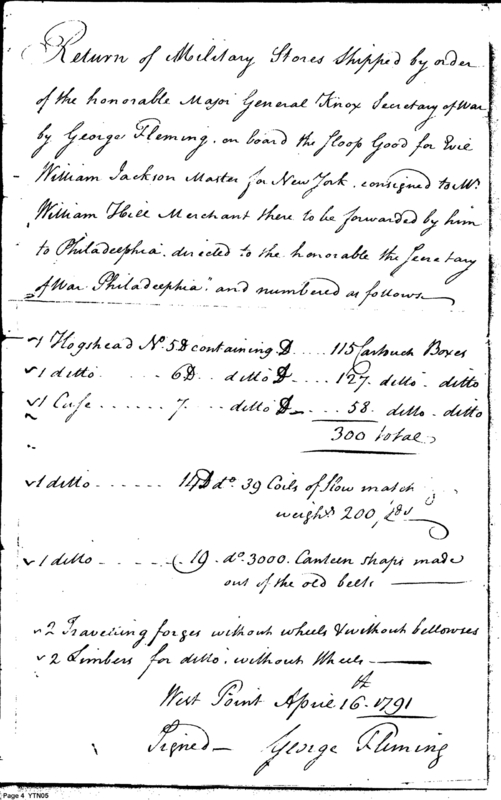 Return of Military Stores Shipped by order
of the honorable Major General Knox Secretary of War
by George Fleming. on board the Sloop Good for Evil
William Jackson Master for New York. consigned to Mr.
William Hill Merchant there to be forwarded by him
to Philadelphia. directed to the honorable the Secretary
of War Philadelphia" and numbered as follows
1 Hogshead No. 5 D containing D .... 115 Cartouch Boxes
1 ditto ...... 6 D. ditto D .... 127. ditto. ditto
1 Case ...... 7. ditto D .... 58. ditto. ditto
300 total
1 ditto ...... 14 D do. 39 Coils of Slow match
weighg. 200, lbs
1 ditto ...... 19. do. 3000. Canteen straps made
out of the old belts
2 Travelling forges without wheels & without bellowses
2 Limbers for ditto. without Wheels
West Point April 16th. 1791
Signed George Fleming
Page 4 YTN05